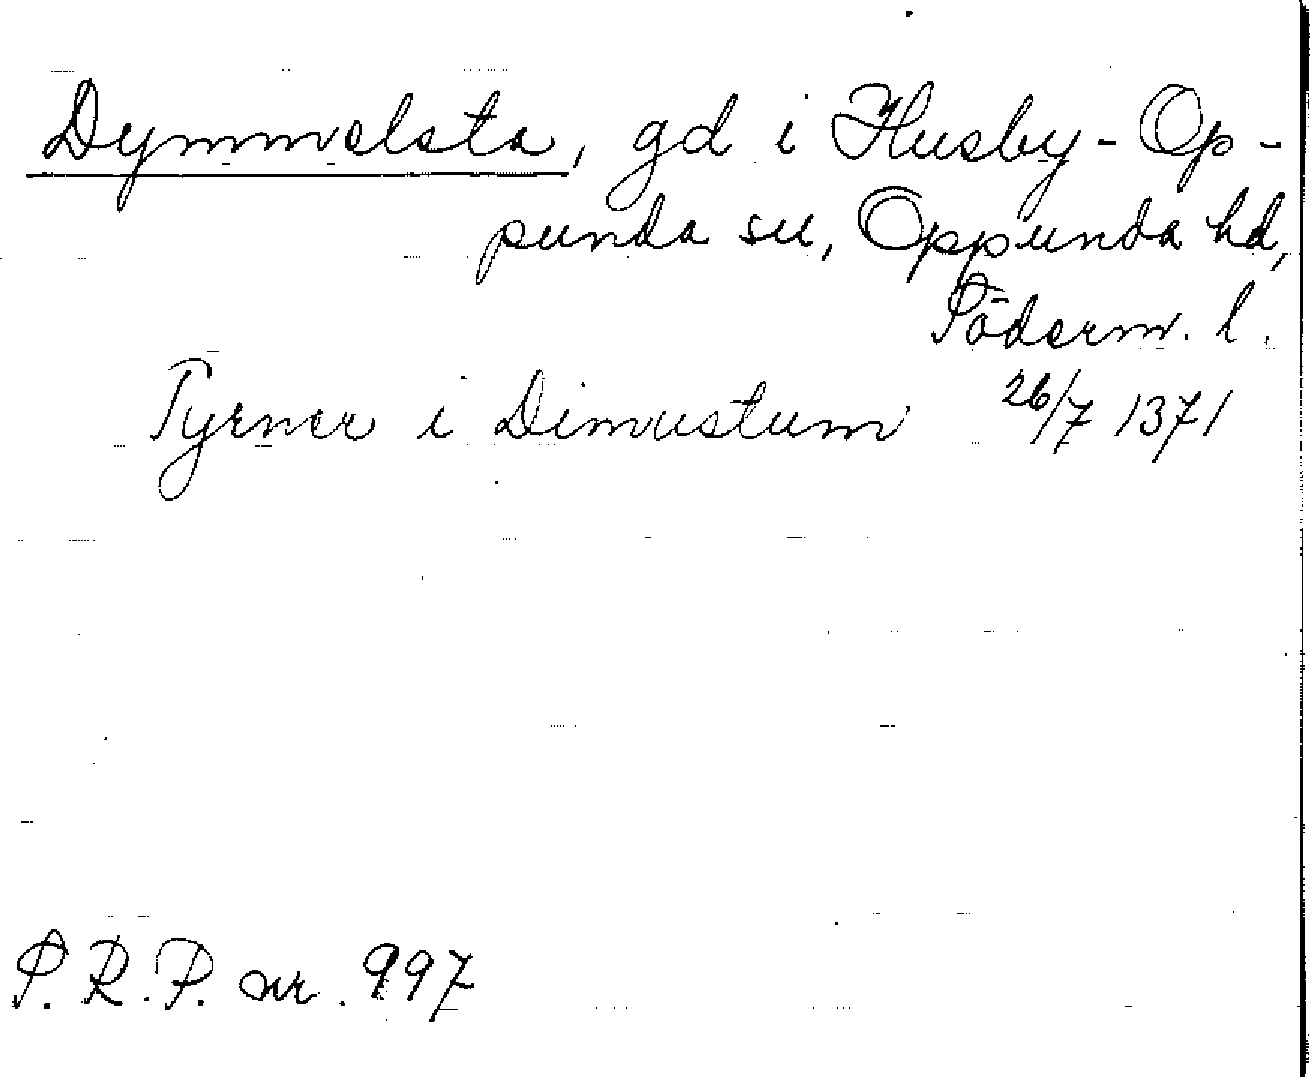 Dymmelsta, gd i Husby-Op-
punda sn, Oppunda hd,
Söderm. l.
Tyrner i Dimustum 26/7 1371
S.R.P. nr. 997